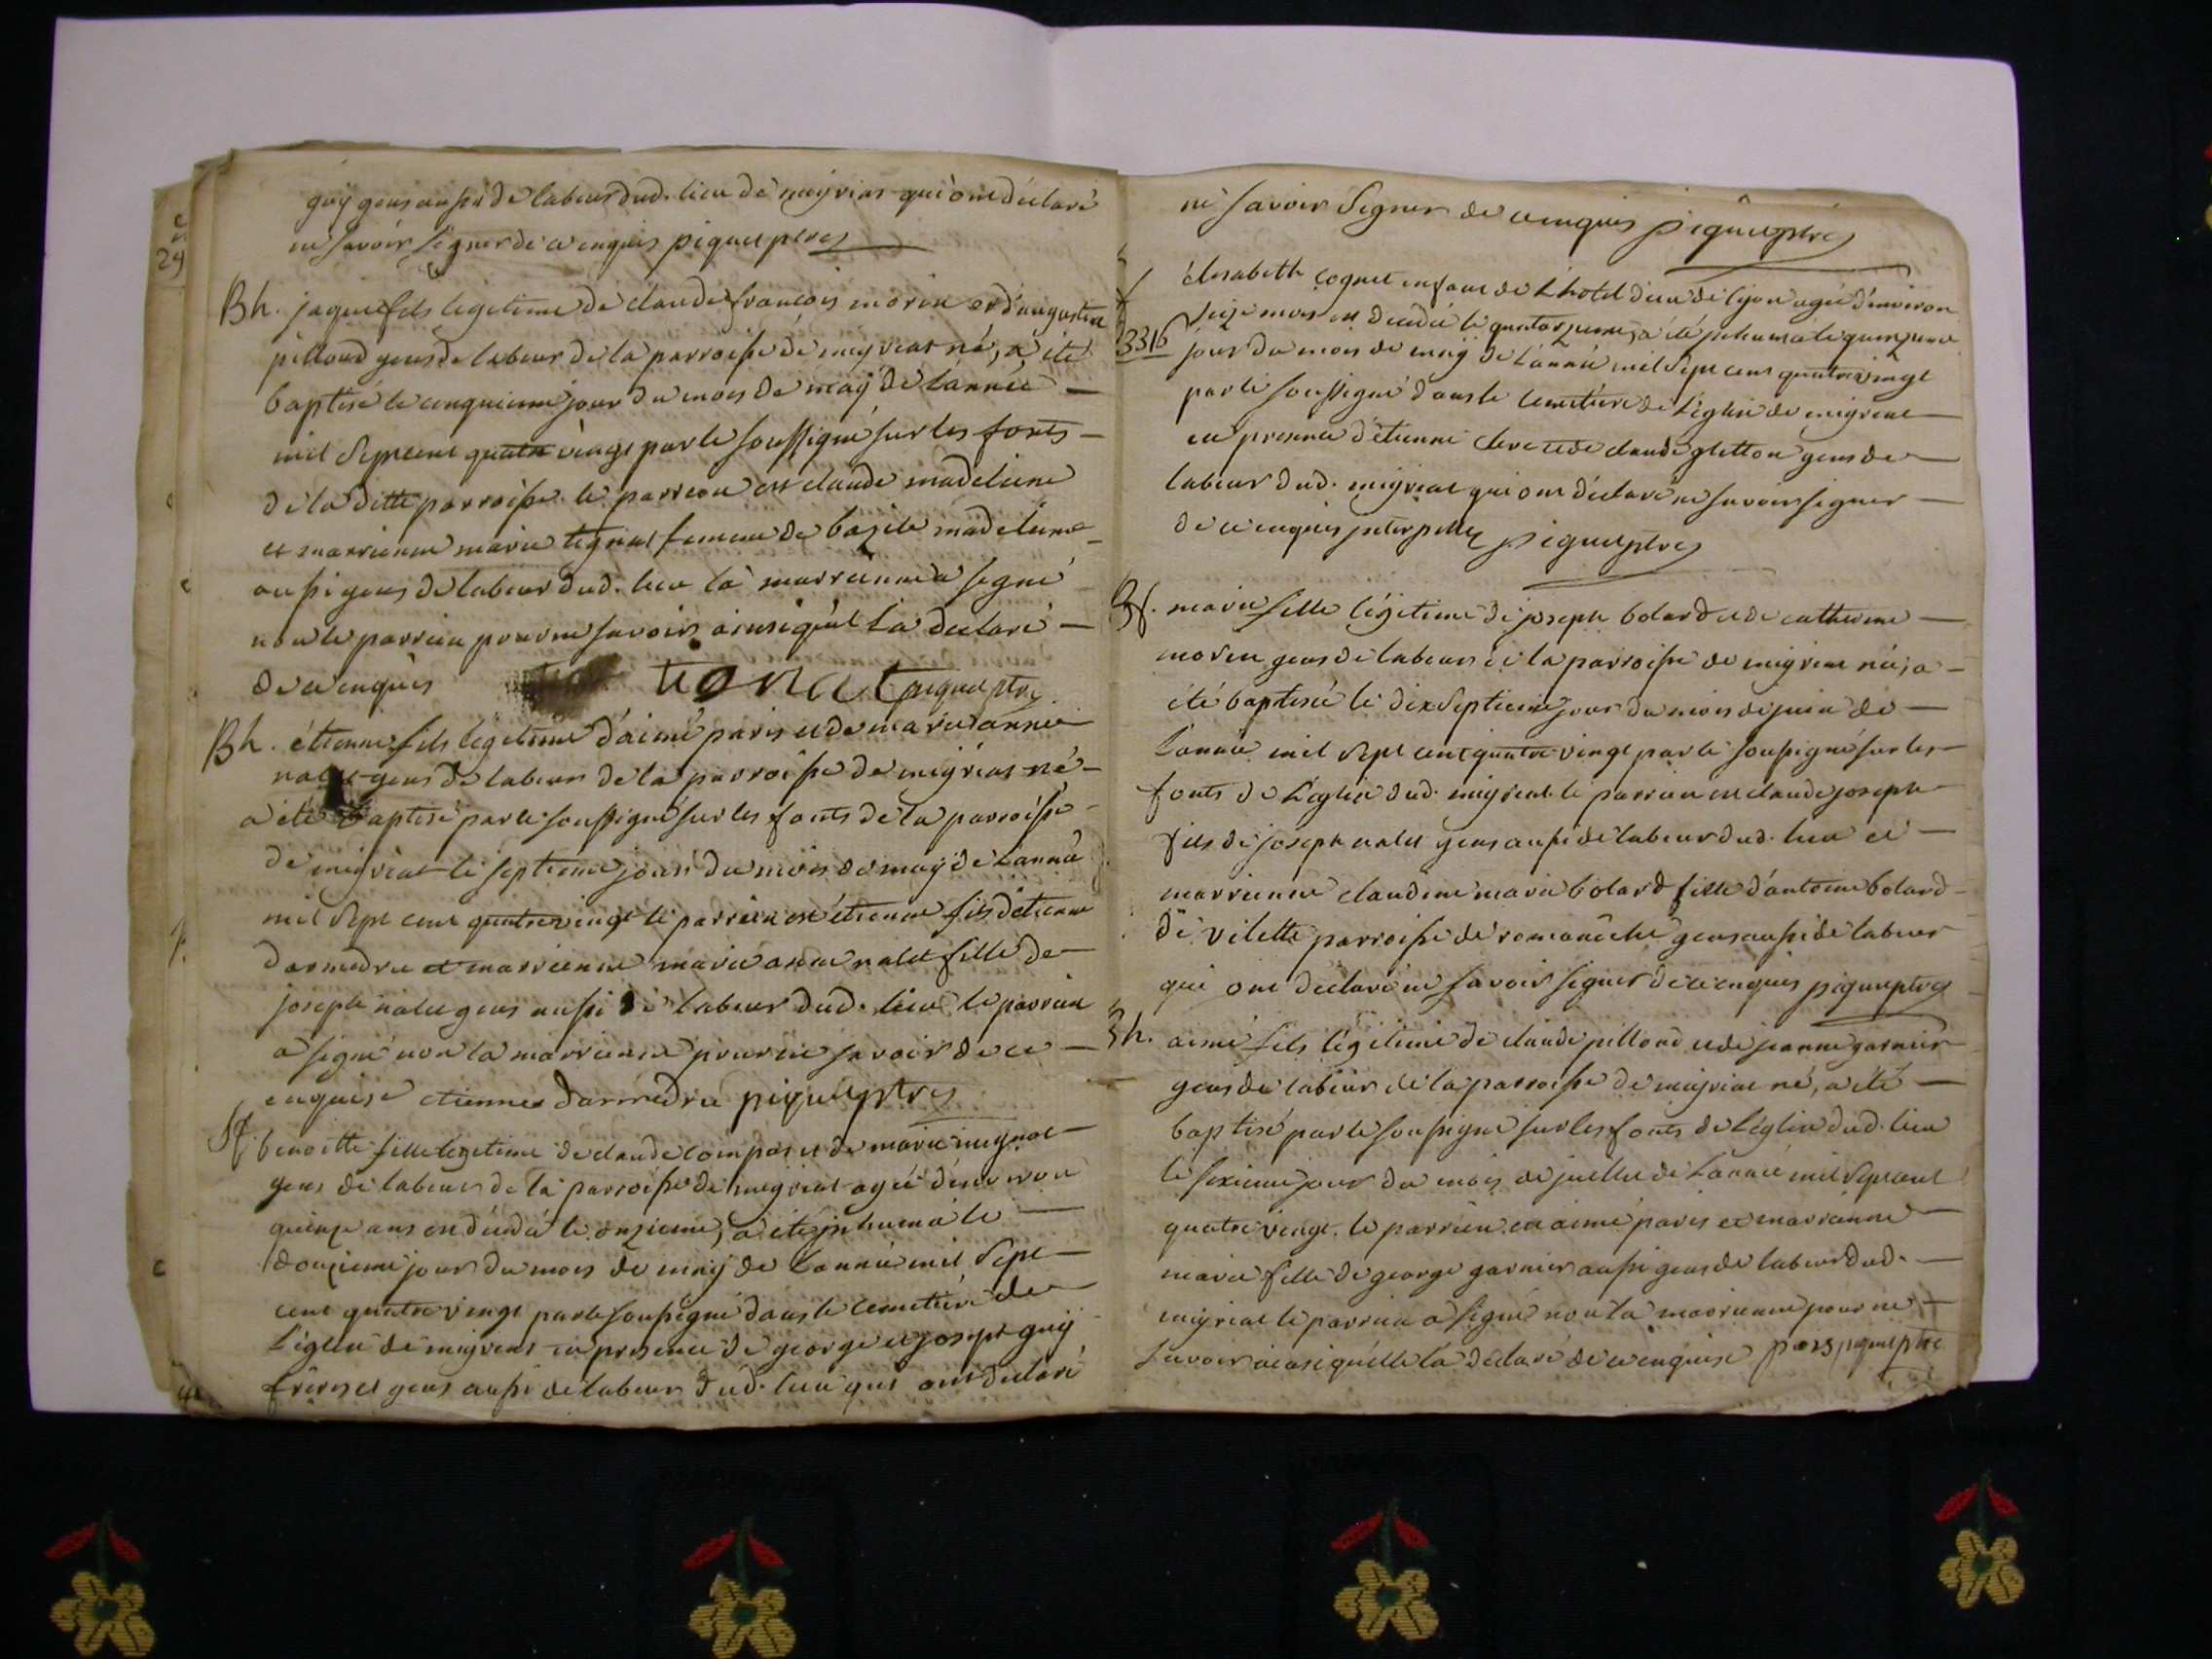 guÿ gens aussi de labeur dud. lieu de meÿrias qui ont déclaré
ne savoir signer de ce enquis piquet ptre
Bh. jaque fils légitime de claude françois morin et d'augustine
pilloud gens de labeur de la parroisse de meyriat né, a été
baptisé le cinquieme jour du mois de maÿ de l'année
mil sept cent quatre vingt par le soussigné sur les fonts
de la ditte parroisse. le parrein est claude madeleine
et marrienne marie tignat femme de bazile madeleine
aussi gens de labeur dud. lieu la marrienne a signé
non le parrein pour ne savoir ainsi qu'il l'a declaré
de ce enquis tionat piquet ptre
Bh. étienne fils légitime d'aimé paris et de marie anne
nalet gens de labeur de la parroisse de meÿrias né
a été baptisé par le soussigné sur les fonts de la parroisse
de meÿriat le septieme jour du mois de maÿ de l'année
mil sept cent quatre vingt le parrein est étienne fils d'étienne
darmedru et marrienne marie anne nalet fille de
joseph nalet gens aussi de labeur dud. lieu le parrein
a signé non la marrienne pour ne savoir de ce
enquise etienne darmedru piquet ptre
Sf. benoitte fille légitime de claude compas et de marie mignot
gens de labeur de la parroisse de meyriat agée d'environ
quinze ans est décédé le onzieme, a été inhumé le
douzieme jour du mois de maÿ de l'année mil sept
cent quatre vingt par le soussigné dans le cemetiere de
l'église de meyriat en presence de george et joseph guÿ
freres et gens aussi de labeur dud. lieu qui ont déclaré
ne savoir signer de ce enquis piquet ptre
élisabeth cognet enfant de l'hotel dieu de lÿon agée d'environ
seize mois est décédé le quatorzieme, a été inhumé le quinzieme
3316 jour du mois de maÿ de l'année mil sept cent quatre vingt
par le soussigné dans le cemetiere de l'église de meyriat
en presence d'étienne et de claude gletton gens de
labeur dud. meÿriat qui ont déclaré ne savoir signer
de ce enquis interpellé piquet ptre
Bf. marie fille légitime de joseph bolard et de catherine
morin gens de labeur de la parroisse de meyriat née, a
été baptisée le dix septieme jour du mois de juin de
l'année mil sept cent quatre vingt par le soussigné sur les
fonts de l'église dud. meyriat. le parrein est claude joseph
fils de joseph nalet gens aussi de labeur dud. lieu et
marrienne claudine marie bolard fille d'antoine bolard
de vilette parroisse de romanêche gens aussi de labeur
qui ont declaré ne savoir signer de ce enquis piquet ptre
Bh. aimé fils légitime de claude pilloud et de jeanne garnier
gens de labeur de la parroisse de meyriat né, a été
baptisé par le soussigné sur les fonts de l'église dud. lieu
le sixieme jour du mois de juillet de l'année mil sept cent
quatre vingt. le parrein est aimé paris et marrienne
marie fille de george garnier aussi gens de labeur dud.
meyriat le parrein a signé non la marrienne pour ne
savoir ainsi qu'elle l'a déclaré de ce enquise paris piquet ptre